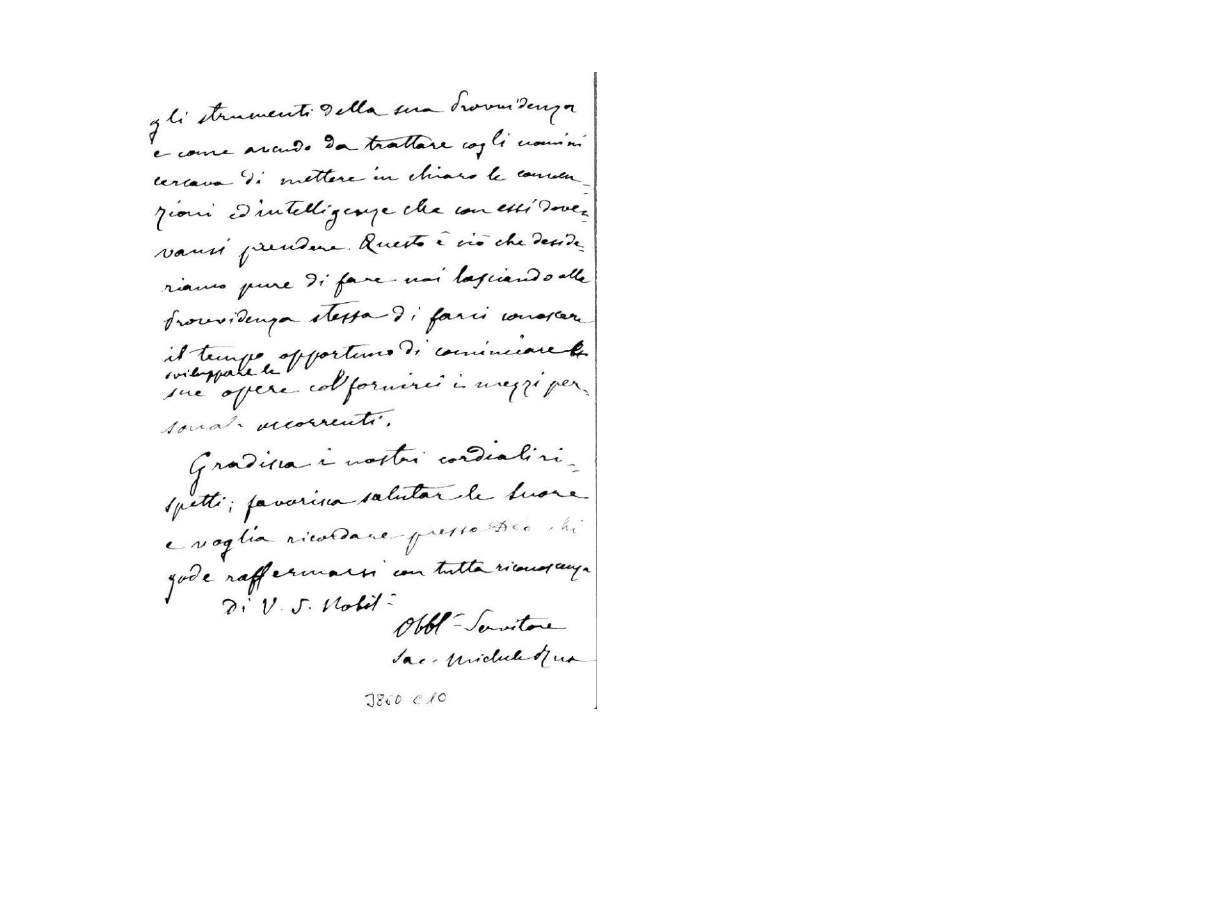 gli strumenti della sua Provvidenza
e come avendo da trattare cogli uomini
cercava di mettere in chiaro le conven-
zioni ed intelligenze che con essi dove-
vansi prendere. Questo è ciò che deside-
riamo pure di fare noi lasciando alla
Provvidenza stessa di farci conoscere
il tempo opportuno di cominciare
sviluppare le
sue opere col fornirci i mezzi per-
sonali occorrenti.
Gradisca i nostri cordiali ri-
spetti; favorisca salutar le Suore
e voglia ricordare presso Dio chi
gode raffermarsi con tutta riconoscenza
Di V. S. Nobil.
Obbl. Servitore
Sac. Michele Rua
J860 C10